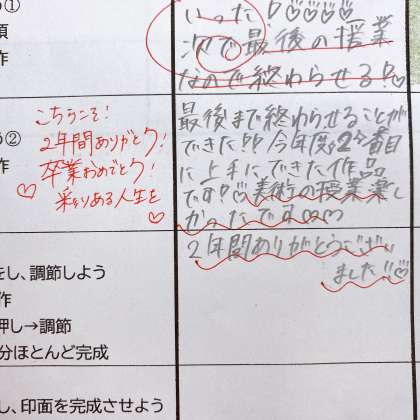 う①
頃
作
いった!!♡♡♡♡♡
次で最後の授業
なので終わらせる!♡
う②
作
こちらこそ!
2年間ありがとう!
卒業おめでとう!
♡彩りある人生を♡
最後まで終わらせることが
できた!!今年度で2番目
に上手にできた作品
です!♡美術の授業楽し
かったです
2年間ありがとうござい
ました!!♡
をし、調節しよう
作
押し→調節
分ほとんど完成
し、印面を完成させよう